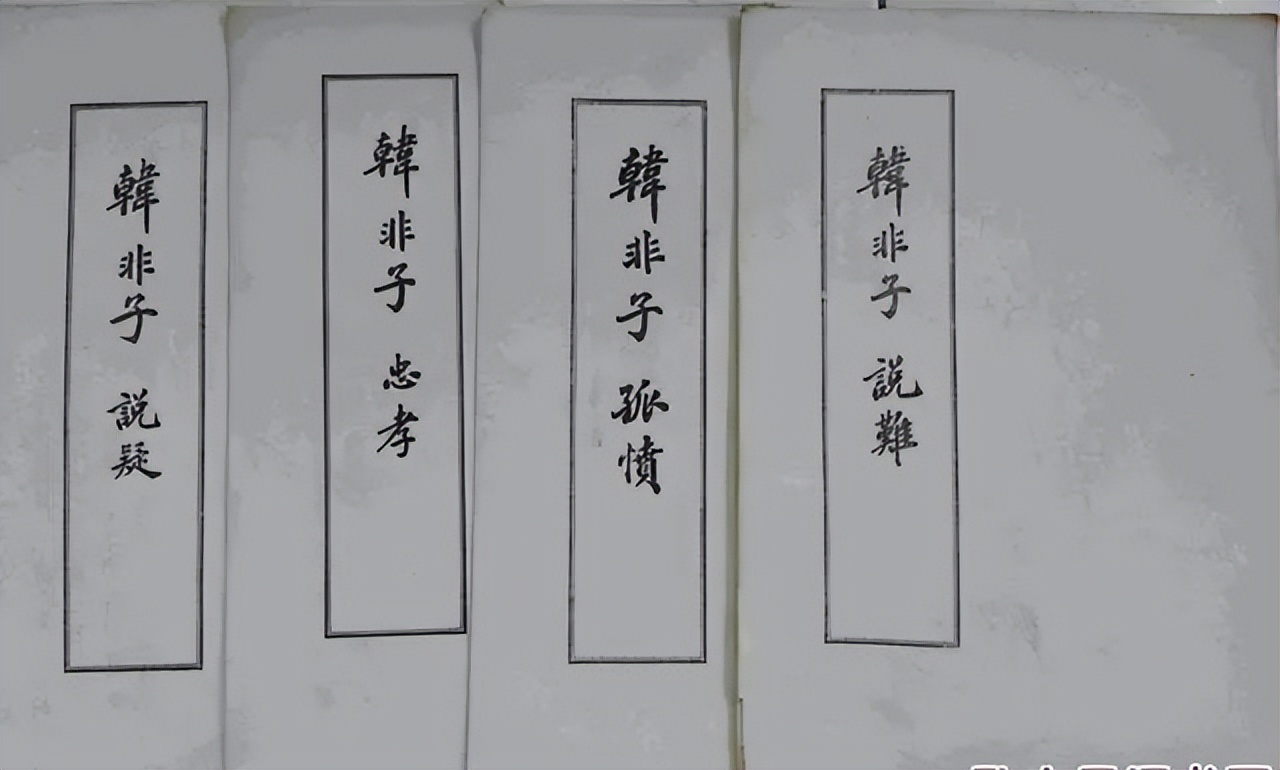 韓非子 説難
韓非子 孤憤
韓非子 忠孝
韓非子 説疑